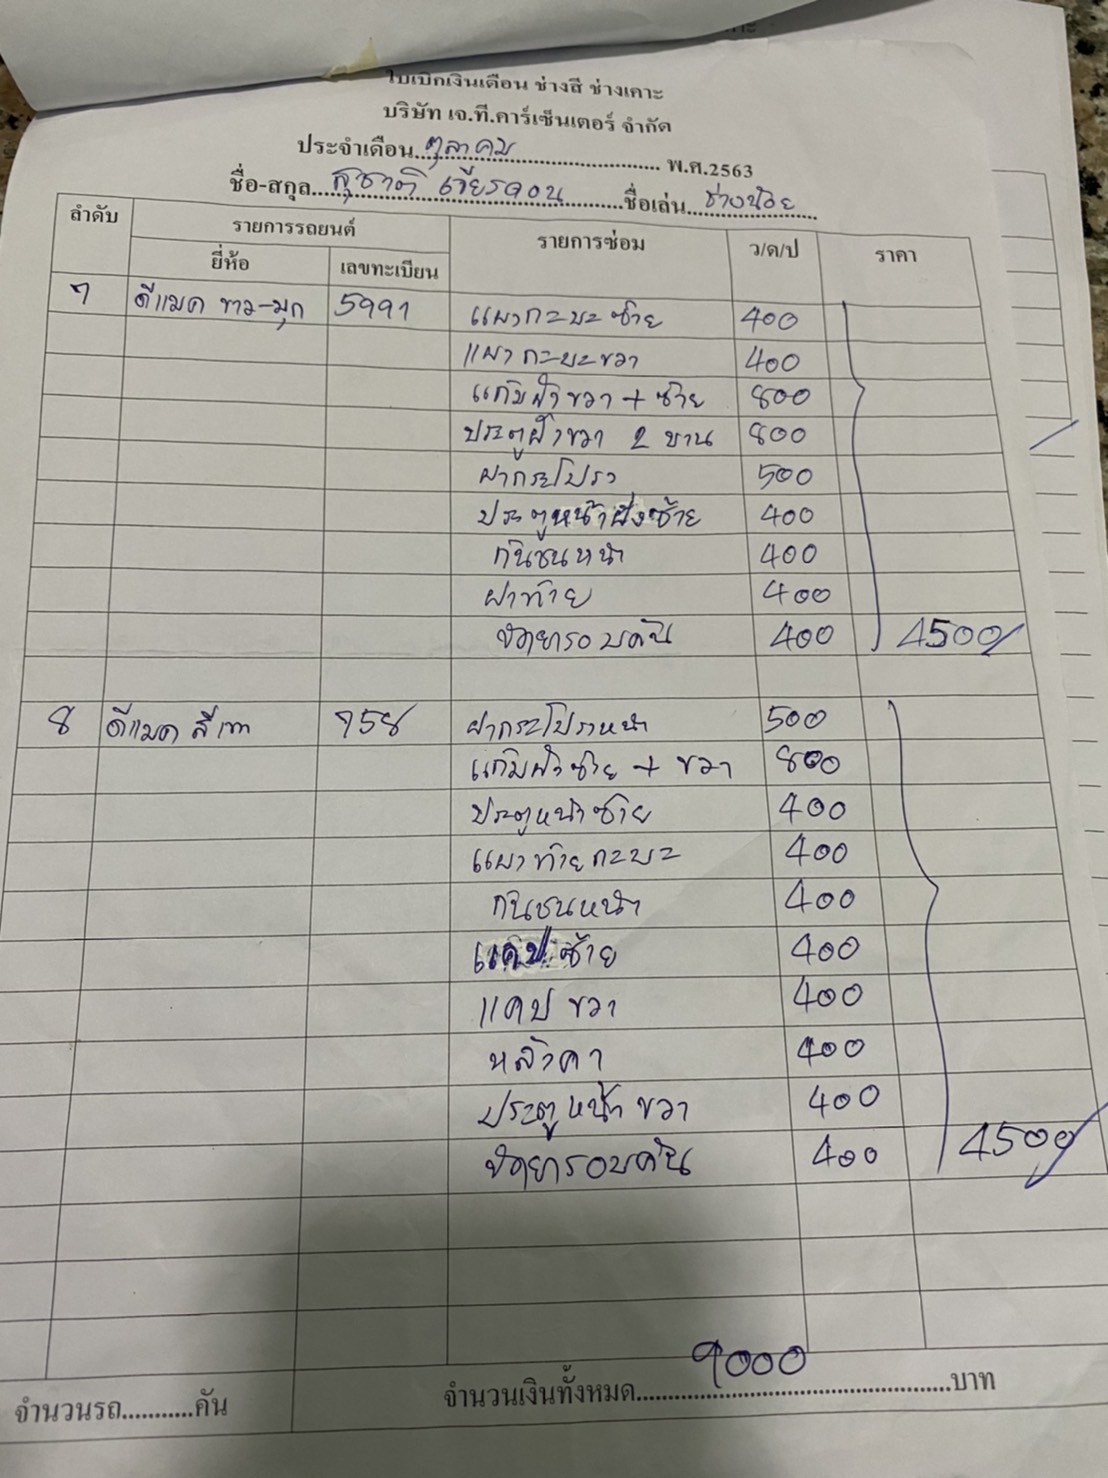 ใบเบิกเงินเดือน ช่างสี ช่างเคาะ
บริษัท เจ.ที.คาร์เซ็นเตอร์ จำกัด
ประจำเดือน ตุลาคม พ.ศ.2563
ชื่อ-สกุล สุชาติ เขียรจอน ชื่อเล่น ช่างน้อย
ลำดับ รายการรถยนต์ รายการซ่อม ว/ด/ป ราคา
ยี่ห้อ เลขทะเบียน
7 ดีแมค ขาว-มุก 5991 แผงกะบะซ้าย 400
แผงกะบะขวา 400
แก้มฝั่งขวา + ซ้าย 800
ประตูฝั่งขวา 2 บาน 800
ฝากระโปรง 500
ประตูหน้าฝั่งซ้าย 400
กันชนหน้า 400
ฝาท้าย 400
ขัดยารอบคัน 400 4500/
8 ดีแมค สีเทา 758 ฝากระโปรงหน้า 500
แก้มฝั่งซ้าย + ขวา 800
ประตูหน้าซ้าย 400
แผงท้ายกะบะ 400
กันชนหน้า 400
แคปซ้าย 400
แคปขวา 400
หลังคา 400
ประตูหน้าขวา 400
ขัดยารอบคัน 400 4500/
จำนวนรถ...........คัน จำนวนเงินทั้งหมด 9000 บาท